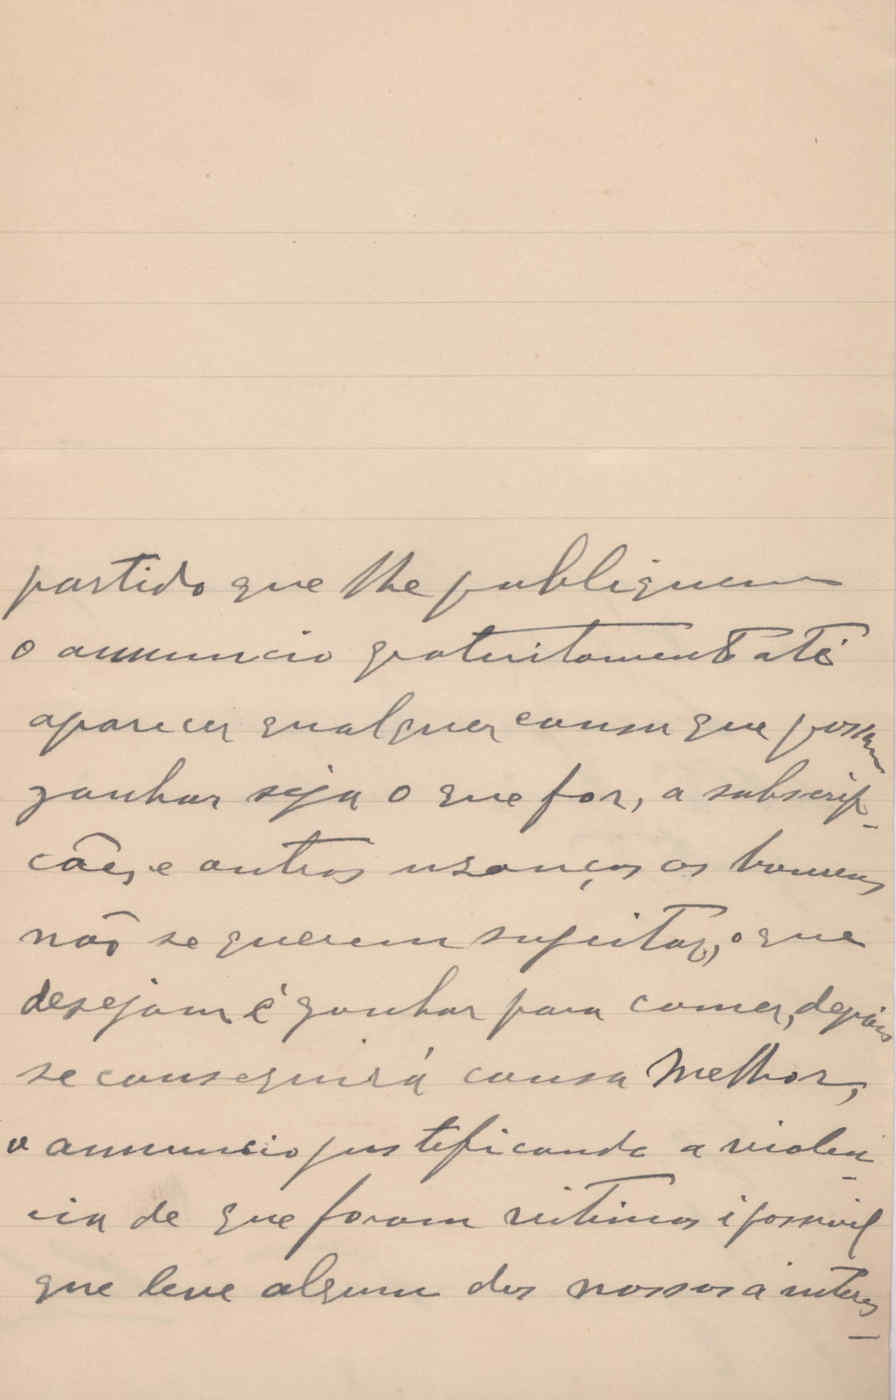 partido que lhe publiquem
o annuncio gratuitamente até
aparecer qualquer cousa que possam
ganhar seja o que for, a subscrip-
cões e outros usanças os homens
não se querem sugeitar, o que
desejam é ganhar para comer, depois
se conseguirá cousa melhor,
o annuncio justificando a violen-
cia de que foram vitimas é possivel
que leve algum dos nossos a interes-